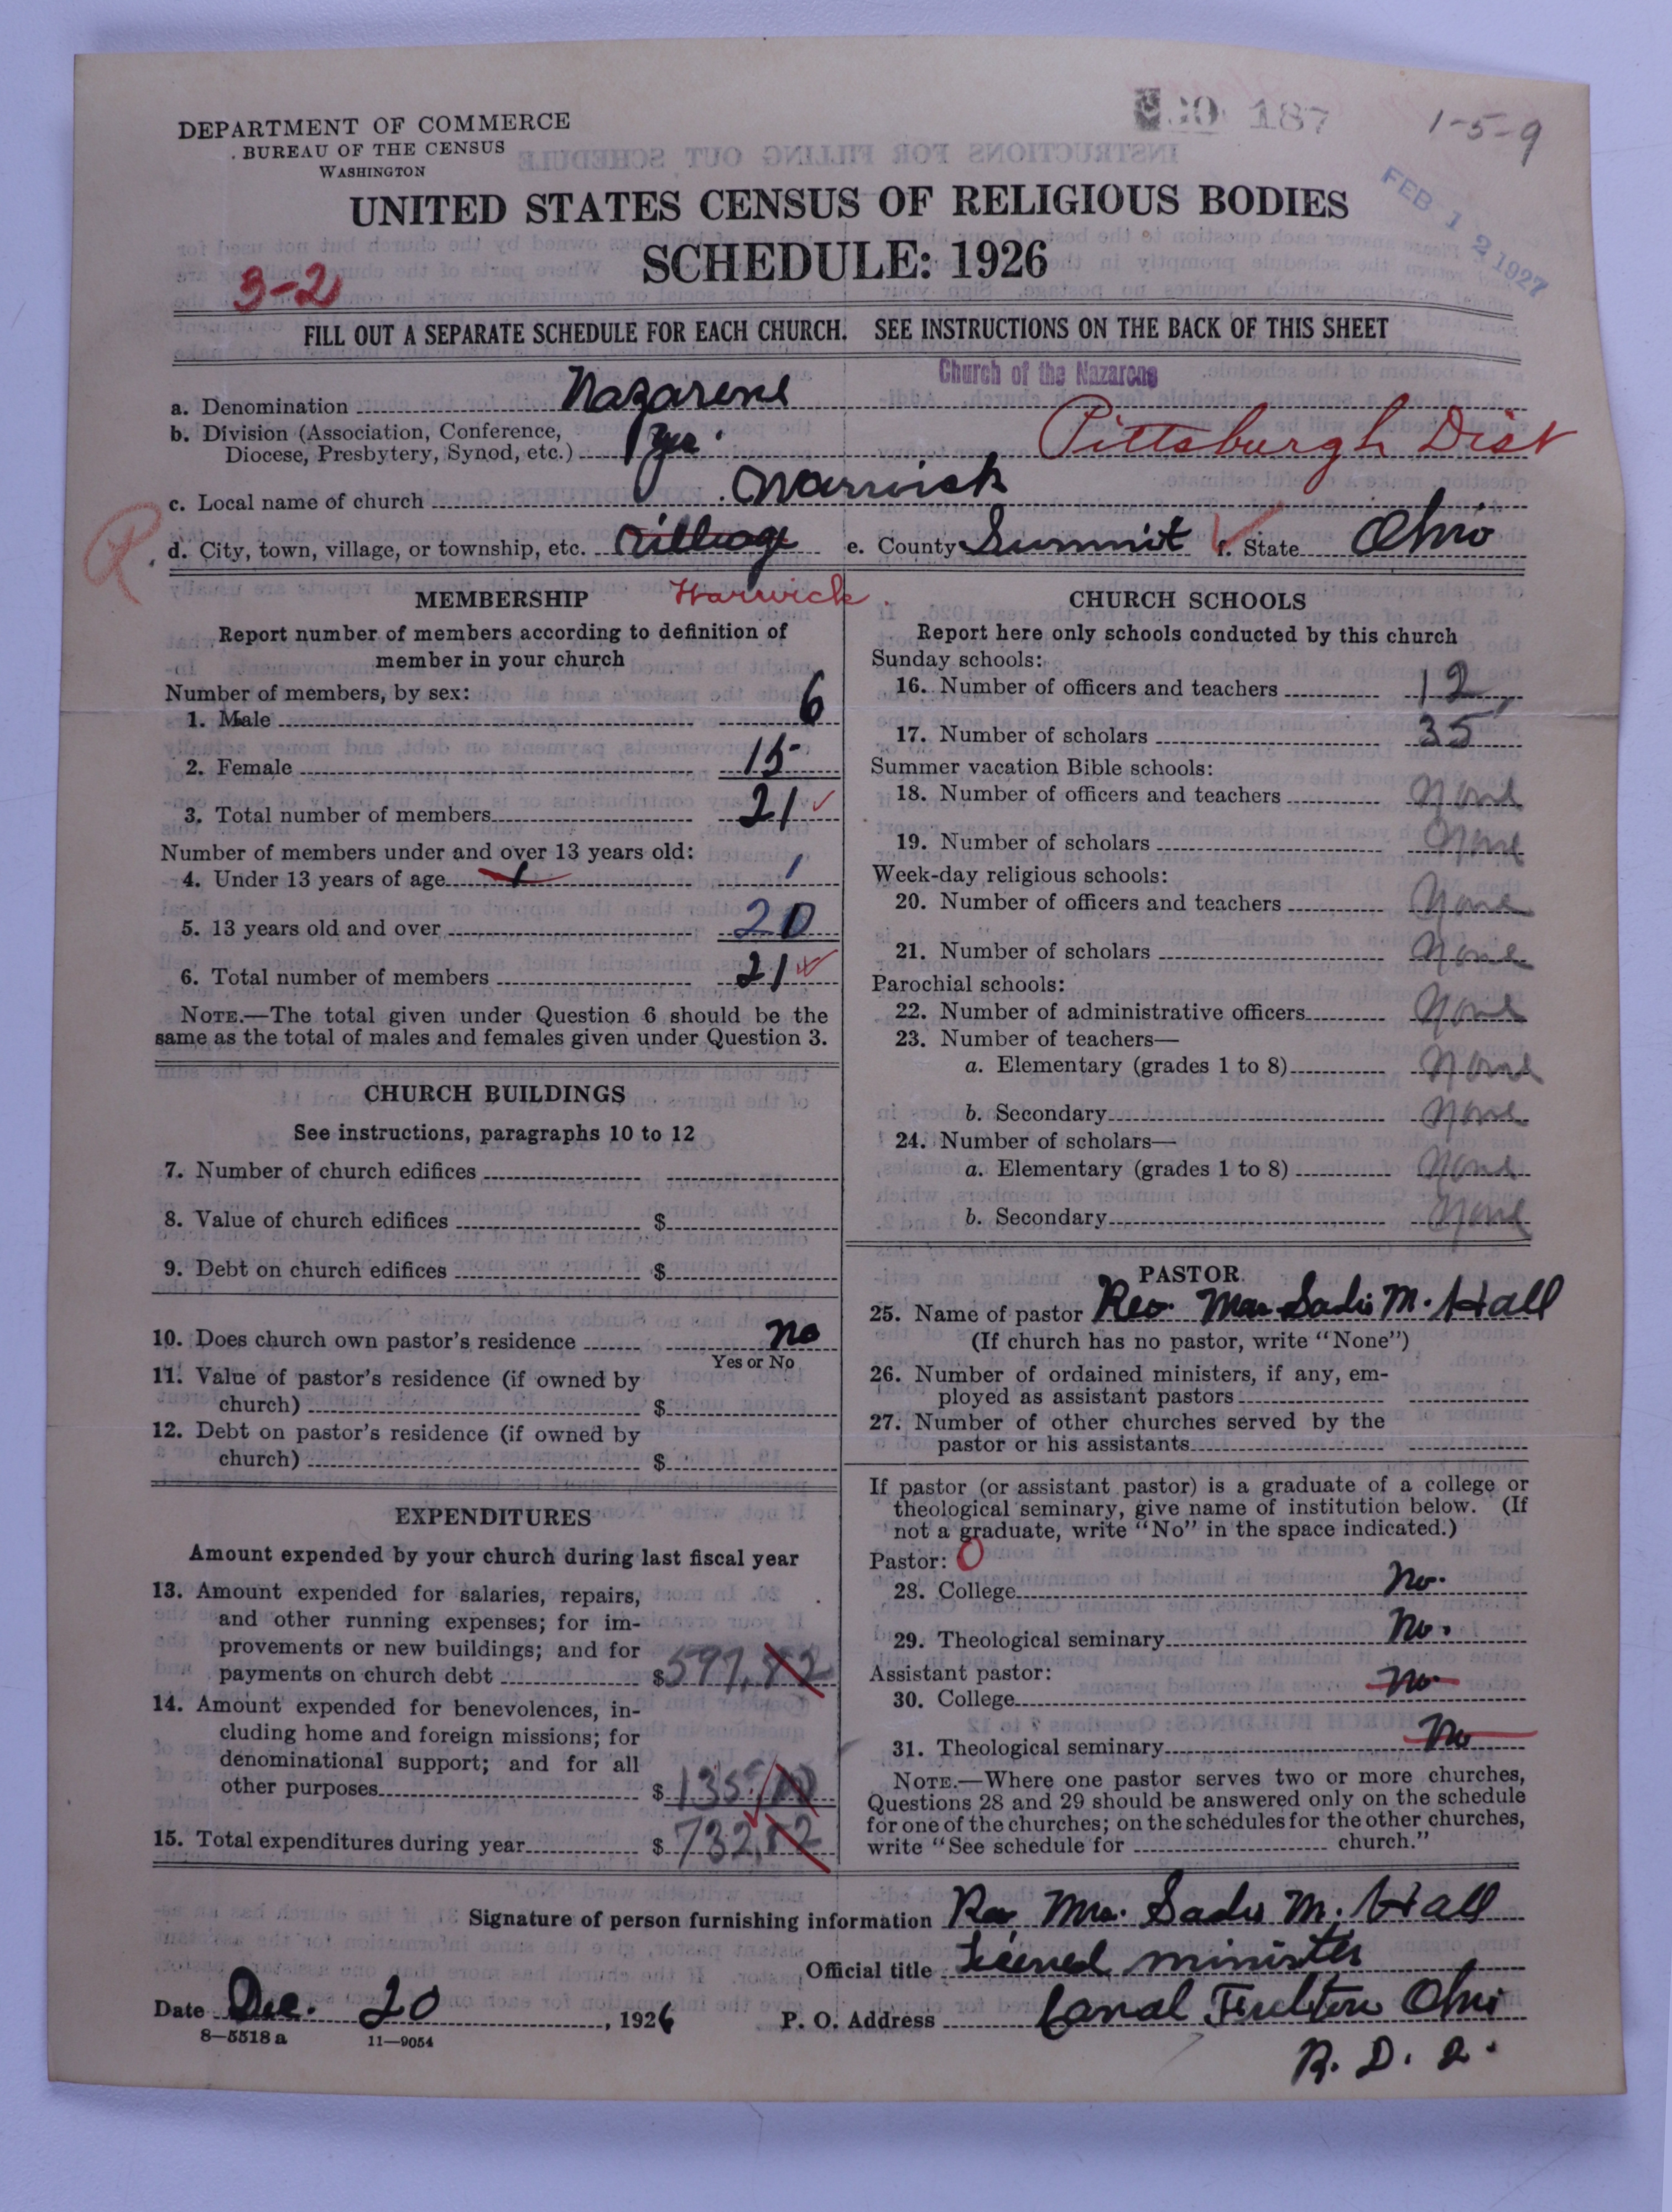 DEPARTMENT OF COMMERCE
BUREAU OF THE CENSUS
WASHINGTON
187
1-5-9
FEB 12 1927
UNITED STATES CENSUS OF RELIGIOUS BODIES
SCHEDULE: 1926
3-2
FILL OUT A SEPARATE SCHEDULE FOR EACH CHURCH. SEE INSTRUCTIONS ON THE BACK OF THIS SHEET
Church of the Nazarene
a. Denomination Nazarene
b. Division (Association, Conference,
Diocese, Presbytery, Synod, etc.) yes. Pittsburgh Dist
c. Local name of church Warwick
R
d. City, town, village, or township, etc. Village e. County Summit f. State Ohio
Warwick.
MEMBERSHIP
Report number of members according to definition of
member in your church
Number of members, by sex:
1. Male 6
2. Female 15
3. Total number of members 21
Number of members under and over 13 years old:
4. Under 13 years of age 1 1
5. 13 years old and over 20
6. Total number of members 21
NOTE.—The total given under Question 6 should be the
same as the total of males and females given under Question 3.
CHURCH BUILDINGS
See instructions, paragraphs 10 to 12
7. Number of church edifices
8. Value of church edifices $
9. Debt on church edifices $
10. Does church own pastor's residence no
Yes or No
11. Value of pastor's residence (if owned by
church) $
12. Debt on pastor's residence (if owned by
church) $
EXPENDITURES
Amount expended by your church during last fiscal year
13. Amount expended for salaries, repairs,
and other running expenses; for im-
provements or new buildings; and for
payments on church debt $597.82
14. Amount expended for benevolences, in-
cluding home and foreign missions; for
denominational support; and for all
other purposes $135.00
15. Total expenditures during year $732.82
CHURCH SCHOOLS
Report here only schools conducted by this church
Sunday schools:
16. Number of officers and teachers 12
17. Number of scholars 35
Summer vacation Bible schools:
18. Number of officers and teachers None
19. Number of scholars None
Week-day religious schools:
20. Number of officers and teachers None
21. Number of scholars None
Parochial schools:
22. Number of administrative officers None
23. Number of teachers—
a. Elementary (grades 1 to 8) None
b. Secondary None
24. Number of scholars—
a. Elementary (grades 1 to 8) None
b. Secondary None
PASTOR
25. Name of pastor Rev. Mrs. Sadie M. Hall
(If church has no pastor, write "None")
26. Number of ordained ministers, if any, em-
ployed as assistant pastors
27. Number of other churches served by the
pastor or his assistants
If pastor (or assistant pastor) is a graduate of a college or
theological seminary, give name of institution below. (If
not a graduate, write "No" in the space indicated.)
Pastor: 0
28. College No.
29. Theological seminary No.
Assistant pastor:
30. College No
31. Theological seminary No
NOTE.—Where one pastor serves two or more churches,
Questions 28 and 29 should be answered only on the schedule
for one of the churches; on the schedules for the other churches,
write "See schedule for church."
Signature of person furnishing information Rev Mrs. Sadie M. Hall
Official title Licened minister
Date Dec. 20, 1926 P. O. Address Canal Fulton Ohio
R. D. 2.
8—5518 a 11—9054